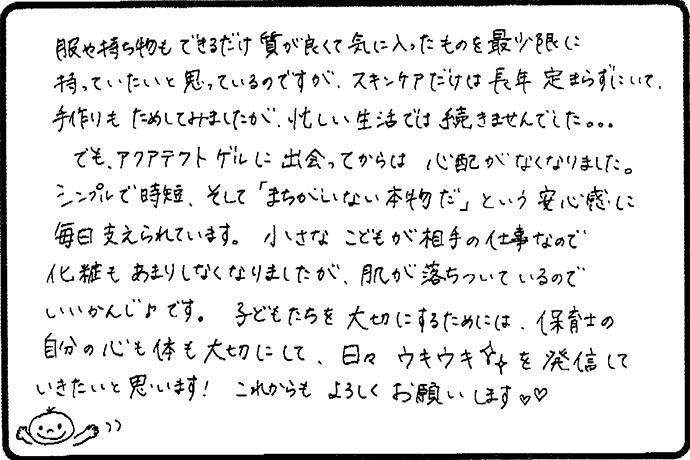 服や持ち物もできるだけ質が良くて気に入ったものを最少限に
持っていたいと思っているのですが、スキンケアだけは長年定まらずにいて、
手作りもためしてみましたが、忙しい生活では続きませんでした。。。
でも、アクアテクトゲルに出会ってからは心配がなくなりました。
シンプルで時短、そして「まちがいない本物だ」という安心感に
毎日支えられています。小さなこどもが相手の仕事なので
化粧もあまりしなくなりましたが、肌が落ちついているので
いいかんじ♪です。子どもたちを大切にするためには、保育士の
自分の心も体も大切にして、日々ウキウキ✧✧を発信して
いきたいと思います！これからもよろしくお願いします♡♡